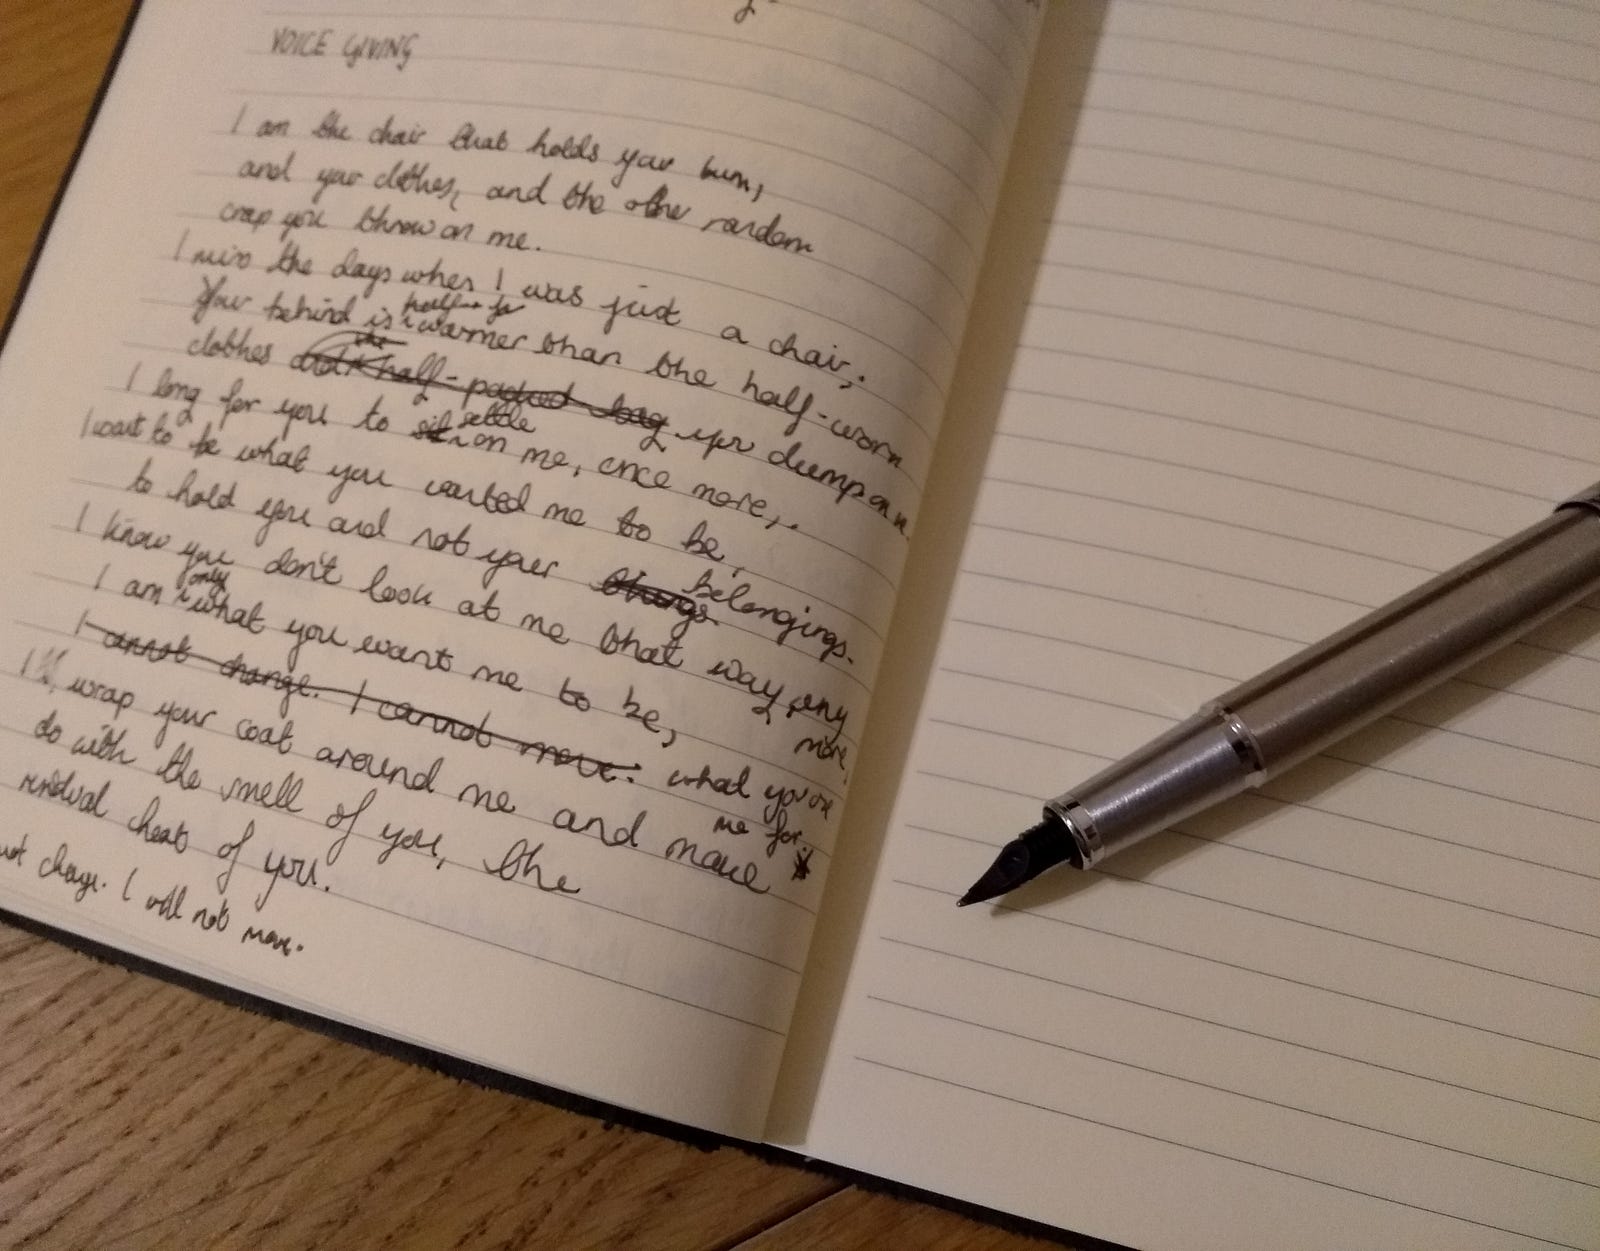 VOICE GIVING
I am the chair that holds your bum,
and your clothes, and the other random
crap you throw on me.
I miss the days when I was just a chair,.
Your behind is warmer than the half-worn
clothes and the half-packed bag you dump on
I long for you to sit settle on me, once more,.
I want to be what you wanted me to be,
to hold you and not your things belongings.
I know you don't look at me that way any
more,
I am only what you want me to be, what you use
me for.
I cannot change. I cannot move.
I'll wrap your coat around me and make
do with the smell of you, the
residual heat of you.
not change. I will not move.